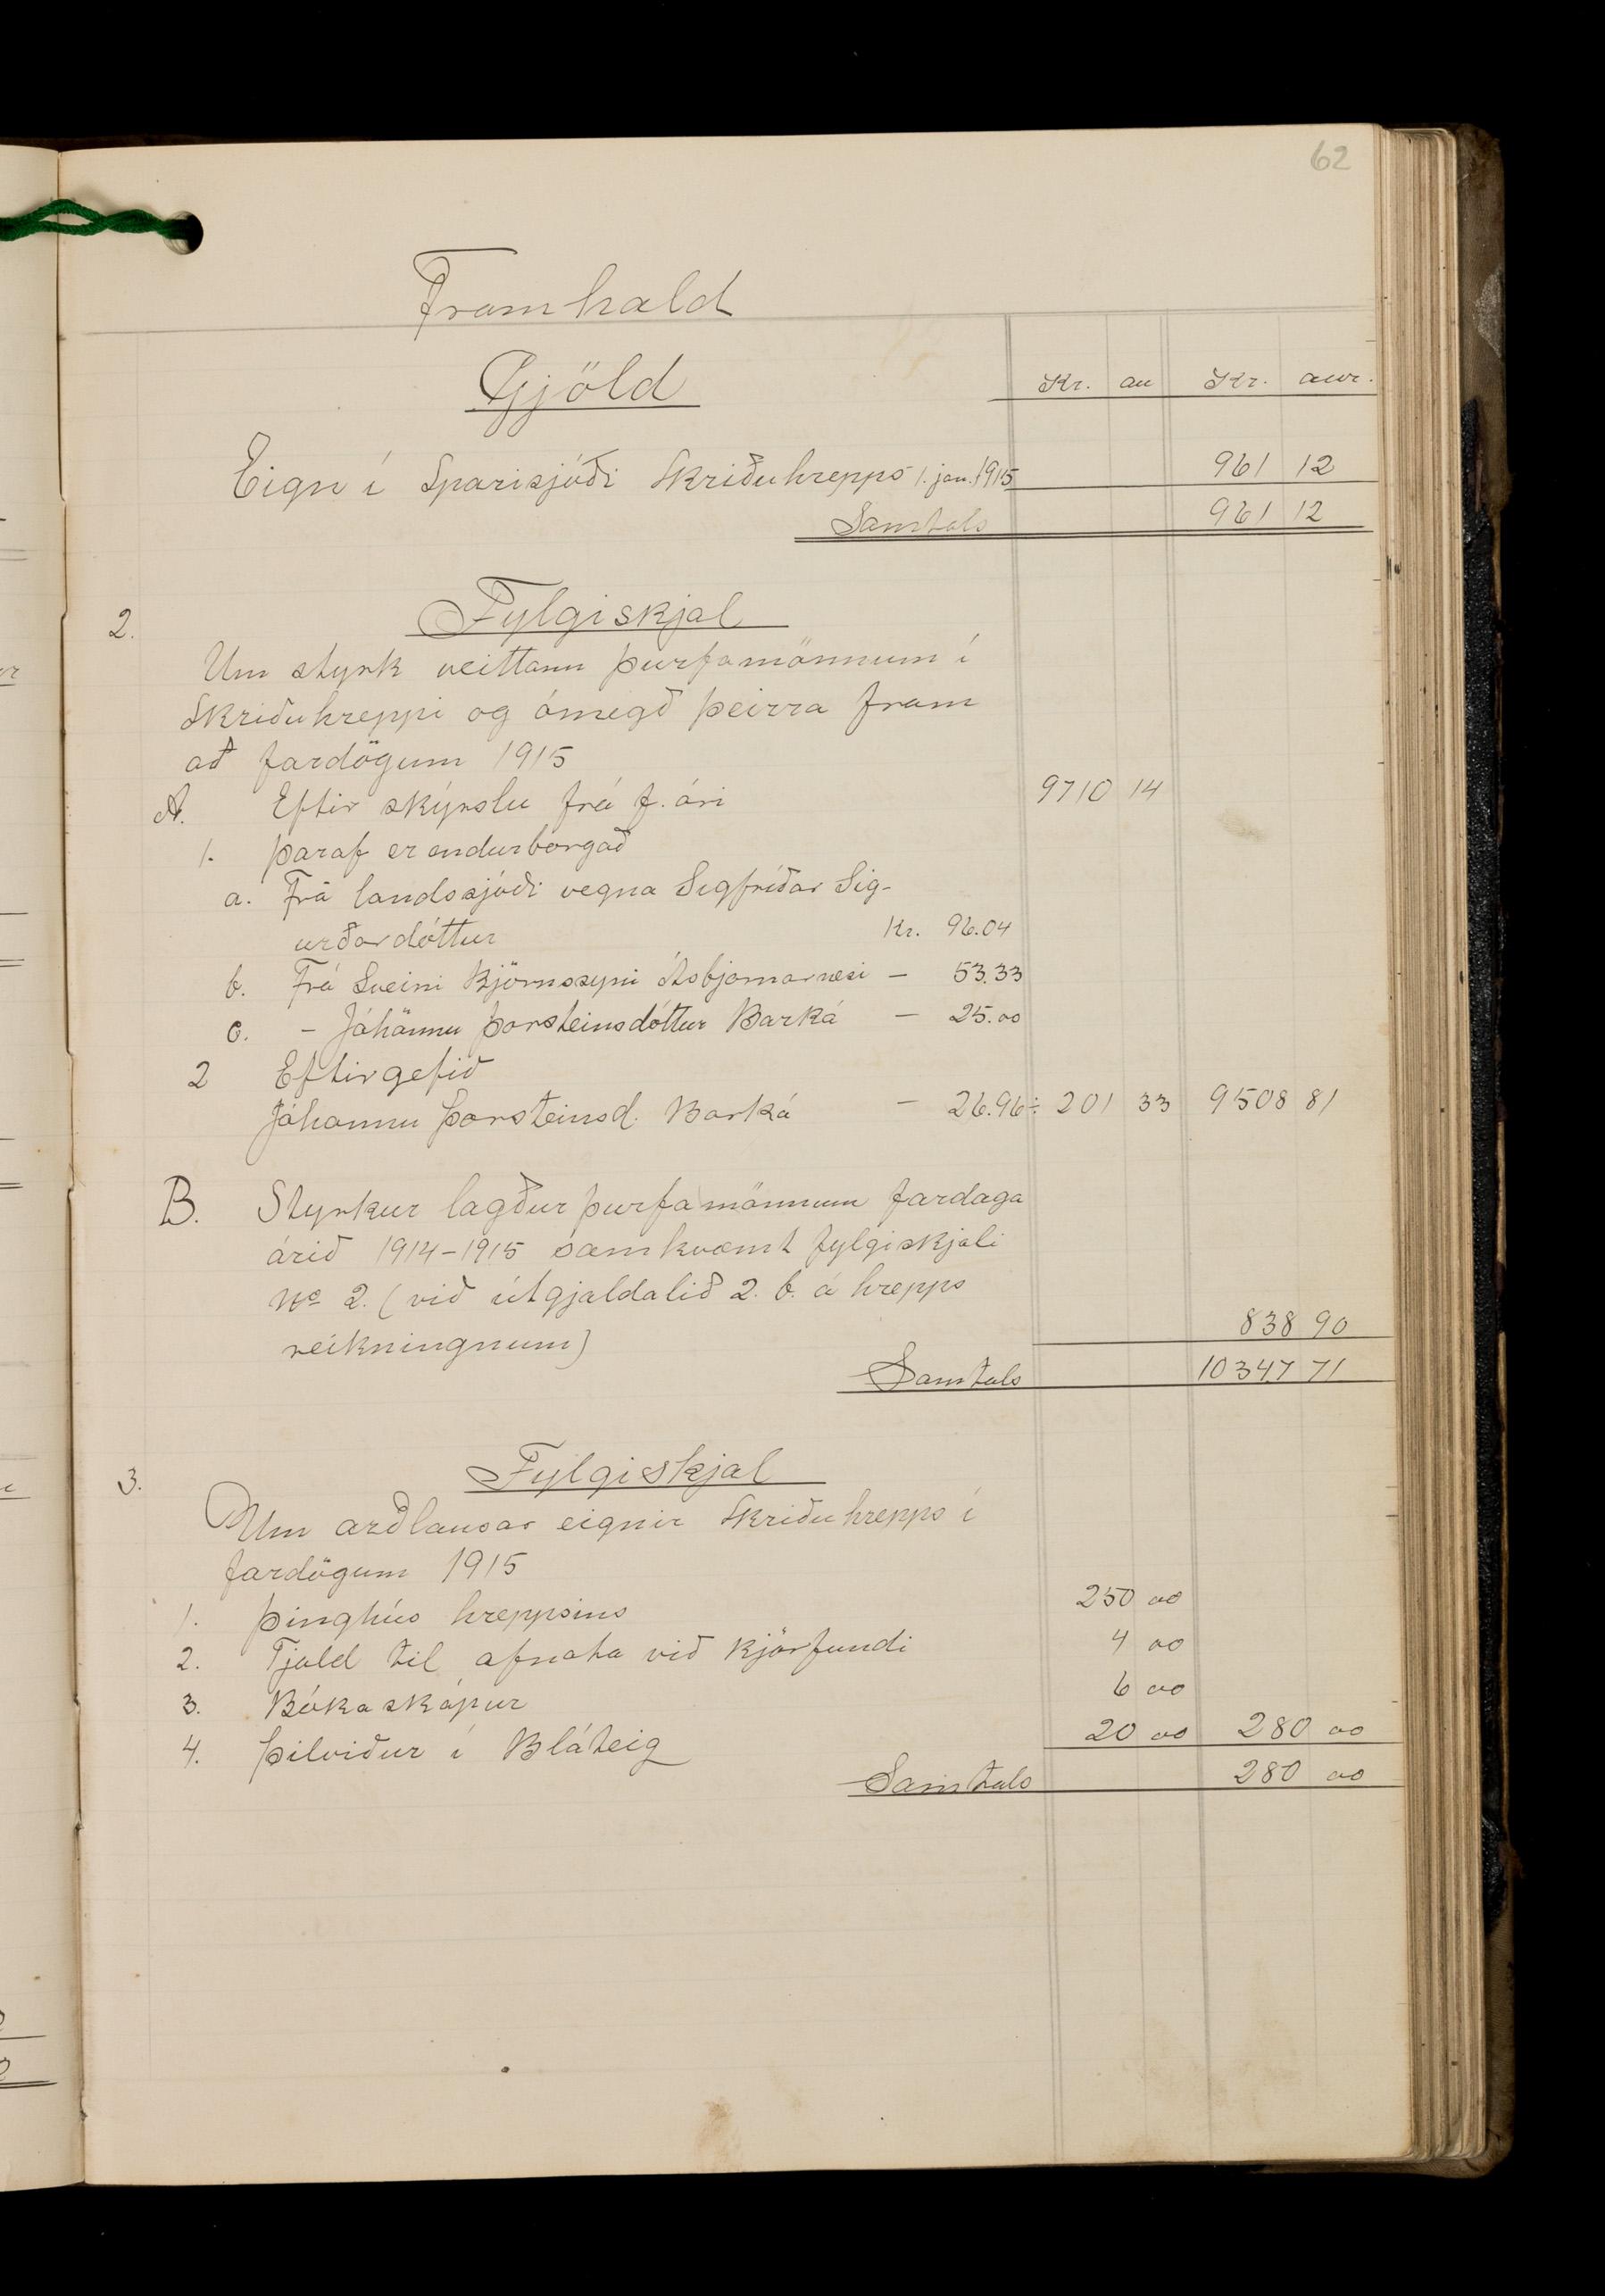 62
Framhald
Gjöld
Kr. au Kr. aur.
Eign í Sparisjóði Skriðuhrepps 1. jan. 1915 961 12
Samtals 961 12
2. Fylgiskjal
Um styrk veittann þurfamönnum í
Skriðuhreppi og ómegð þeirra fram
að fardögum 1915
A. Eftir skýrslu frá f. ári 9710 14
1. Þaraf er endurborgað
a. Frá landssjóði vegna Sigfríðar Sig-
urðardóttur Kr. 96.04
b. Frá Sveini Björnssyni Ásbjarnarnesi — 53.33
c. – Jóhönnu Þorsteinsdóttur Barká — 25.00
2 Eftirgefið
Jóhönnu Þorsteinsd. Barká — 26.96 ÷ 201 33 9508 81
B. Styrkur lagður þurfamönnum fardaga
árið 1914–1915 samkvæmt fylgiskjali
No 2. (við útgjaldalið 2. b. á hrepps
reikningnum) 838 90
Samtals 10347 71
3. Fylgiskjal
Um arðlausar eignir Skriðuhrepps í
fardögum 1915
1. Þinghús hreppsins 250 00
2. Tjald til afnota við kjörfundi 4 00
3. Bókaskápur 6 00
4. Þilviður í Bláteig 20 00 280 00
Samtals 280 00